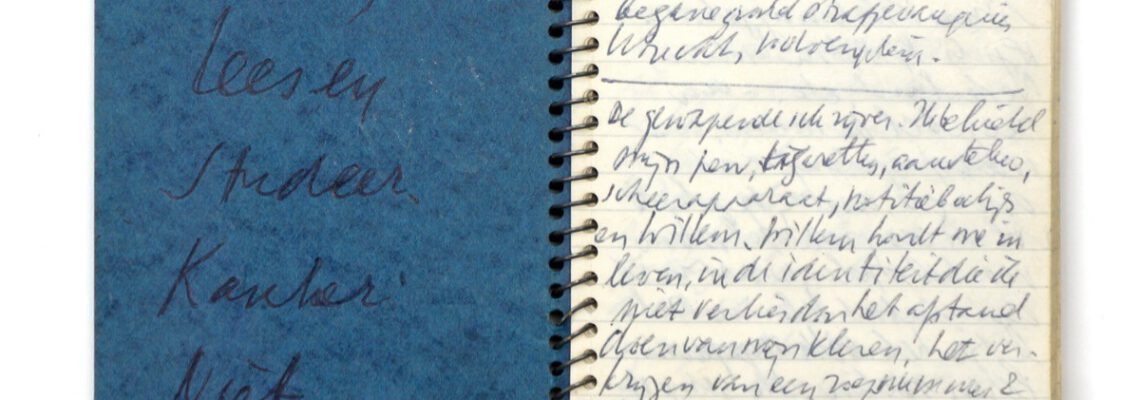 Lees en
Studeer
Niet
Utrecht,
De gewapende schrijver. Ik behield
mijn pen, sigaretten, aansteker,
scheerapparaat, notitieboekje
en Willem. Willem houdt me in
leven, in de identiteit die ik
niet verlies door het afstand
doen van mijn kleren, het ver-
krijgen van een